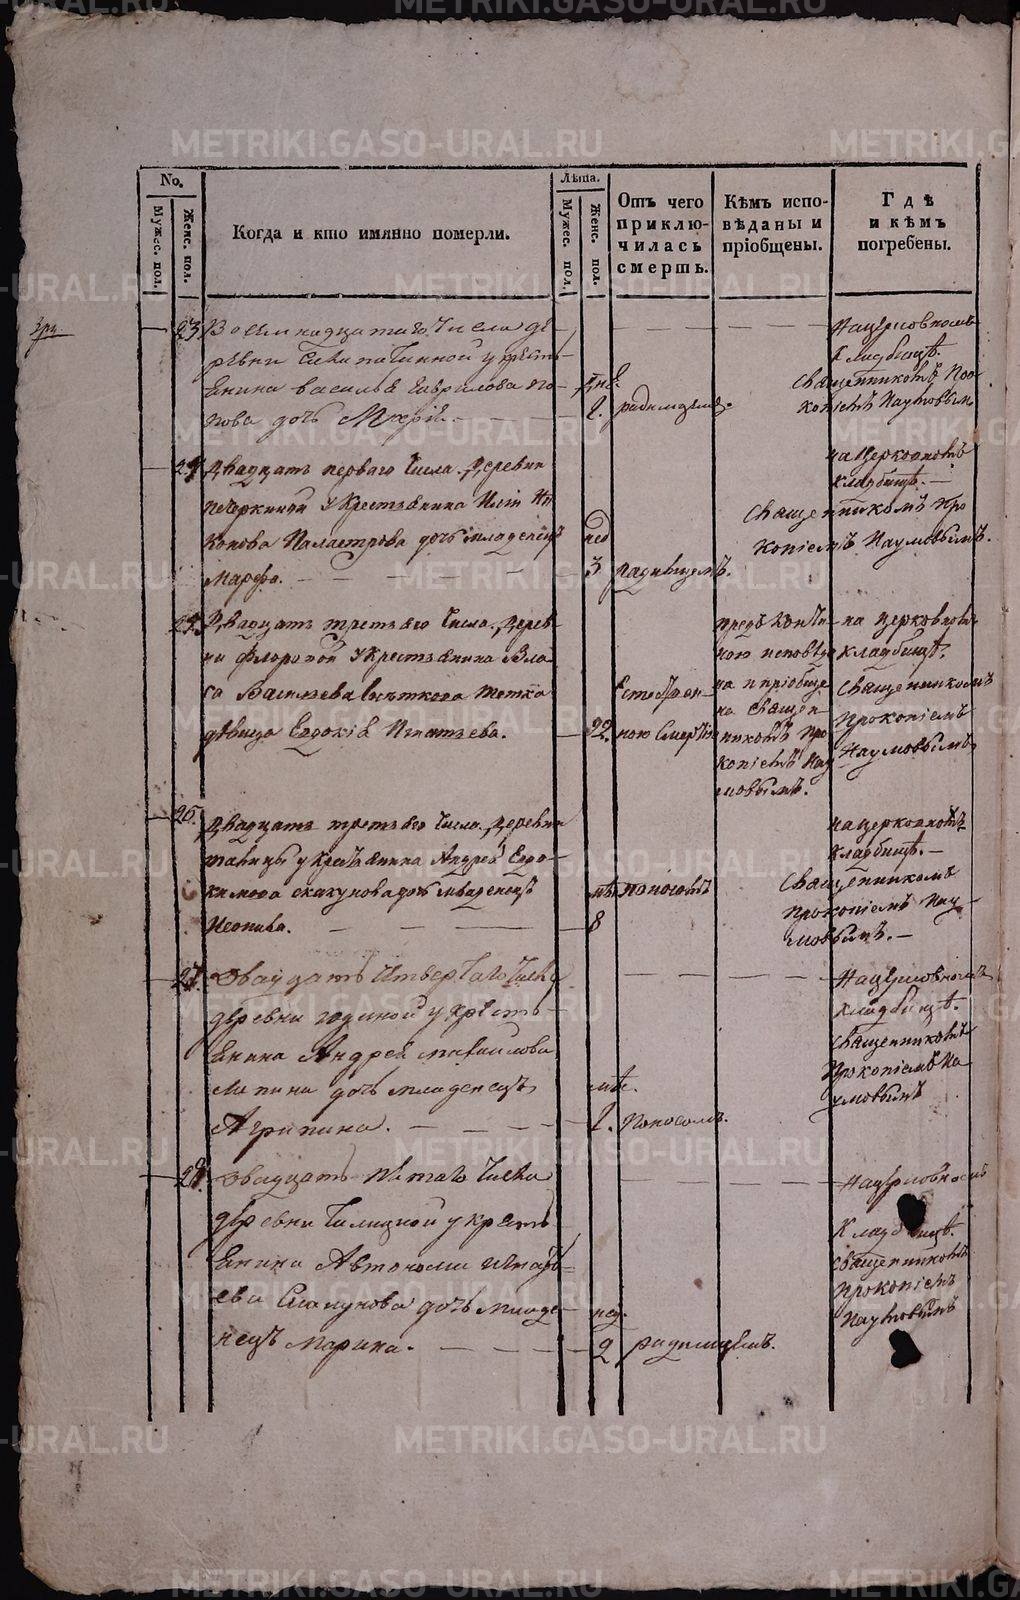 METRIKI.GASO-URAL.RU
No.
Мужес. пол.
Женс. пол.
Когда и кто имянно померли.
Лѣта.
Мужес. пол.
Женс. пол.
Отъ чего приклю-
чилась смерть.
Кѣмъ испо-
вѣданы и
пріобщены.
Гдѣ
и кѣмъ
погребены.
23. Восемнадцатаго Числа де-
ревни у кресть-
янина Василья Гаврилова По-
пова дочь Марія.
дне.
2. родимцемъ.
На церковномъ
кладбищѣ.
Священникомъ Про-
копіемъ Наумовымъ
24. Двадцать перваго Числа. Деревни
Печеркиной у Крестьянина Ильи
дочь младенецъ
Марфа.
нед
3 родимцемъ.
на церковномъ
кладбищѣ.
Священникомъ Про
копіемъ Наумовымъ.
25. Двадцать третьяго Числа. Дерев-
ни у Крестьянина Вла-
са Васильева тетка
дѣвица Евдокія Игнатьева.
92.
Естествен-
ною смертію
предъ кончи-
ною исповѣда
на и пріобще
на Священ-
никомъ Про
копіемъ Нау
мовымъ.
на церковномъ
кладбищѣ.
Священникомъ
Прокопіемъ
Наумовымъ
26. Двадцать третьяго Числа. Деревни
у Крестьянина Андрея Евдо-
кимова Скакунова дочь младенецъ
Неонила.
мѣ
8
поносомъ
на церковномъ
кладбищѣ.
Священникомъ
Прокопіемъ Нау-
мовымъ.
27. Двадцать четвертаго Числа
деревни у кресть-
янина Андрея Михайлова
дочь младенецъ
Агрипина.
мѣ.
2. Поносомъ.
На церковномъ
кладбищѣ.
Священникомъ
Прокопіемъ На
умовымъ
28. Двадцать пятаго Числа
деревни у кресть-
янина Автонома Игнать-
ева дочь младе-
нецъ Марина.
нед.
2 родимцемъ.
На церковномъ
Кладбищѣ.
Священникомъ
Прокопіемъ
Наумовымъ